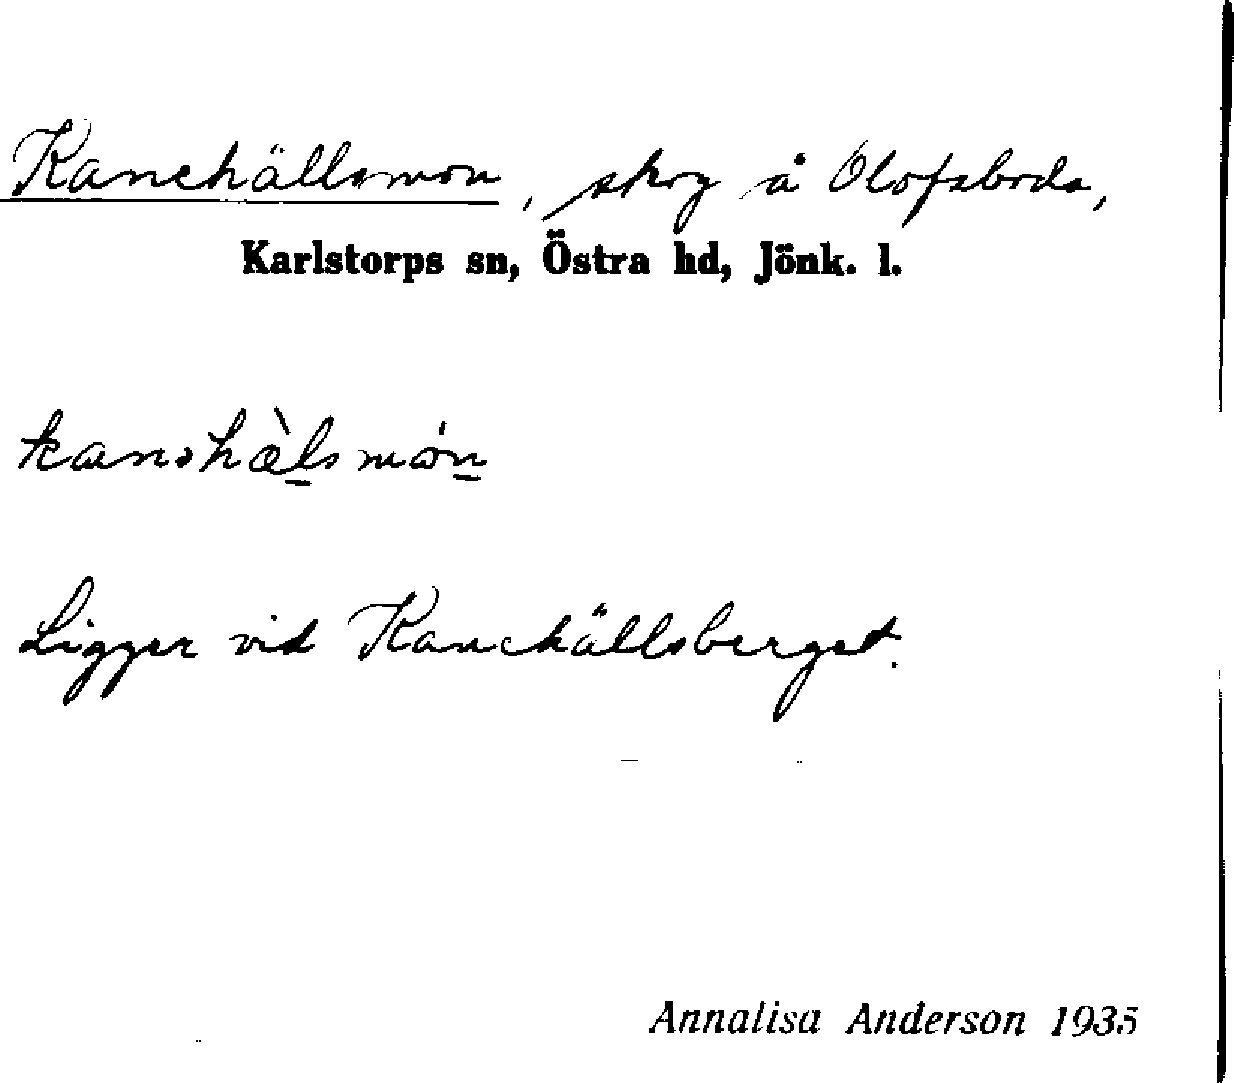 Kanehällsmon, skog å Olofsboda,
Karlstorps sn, Östra hd, Jönk. l.
kanəhæ̀lsmón
Ligger vid Kanehällsberget.
Annalisa Anderson 1935